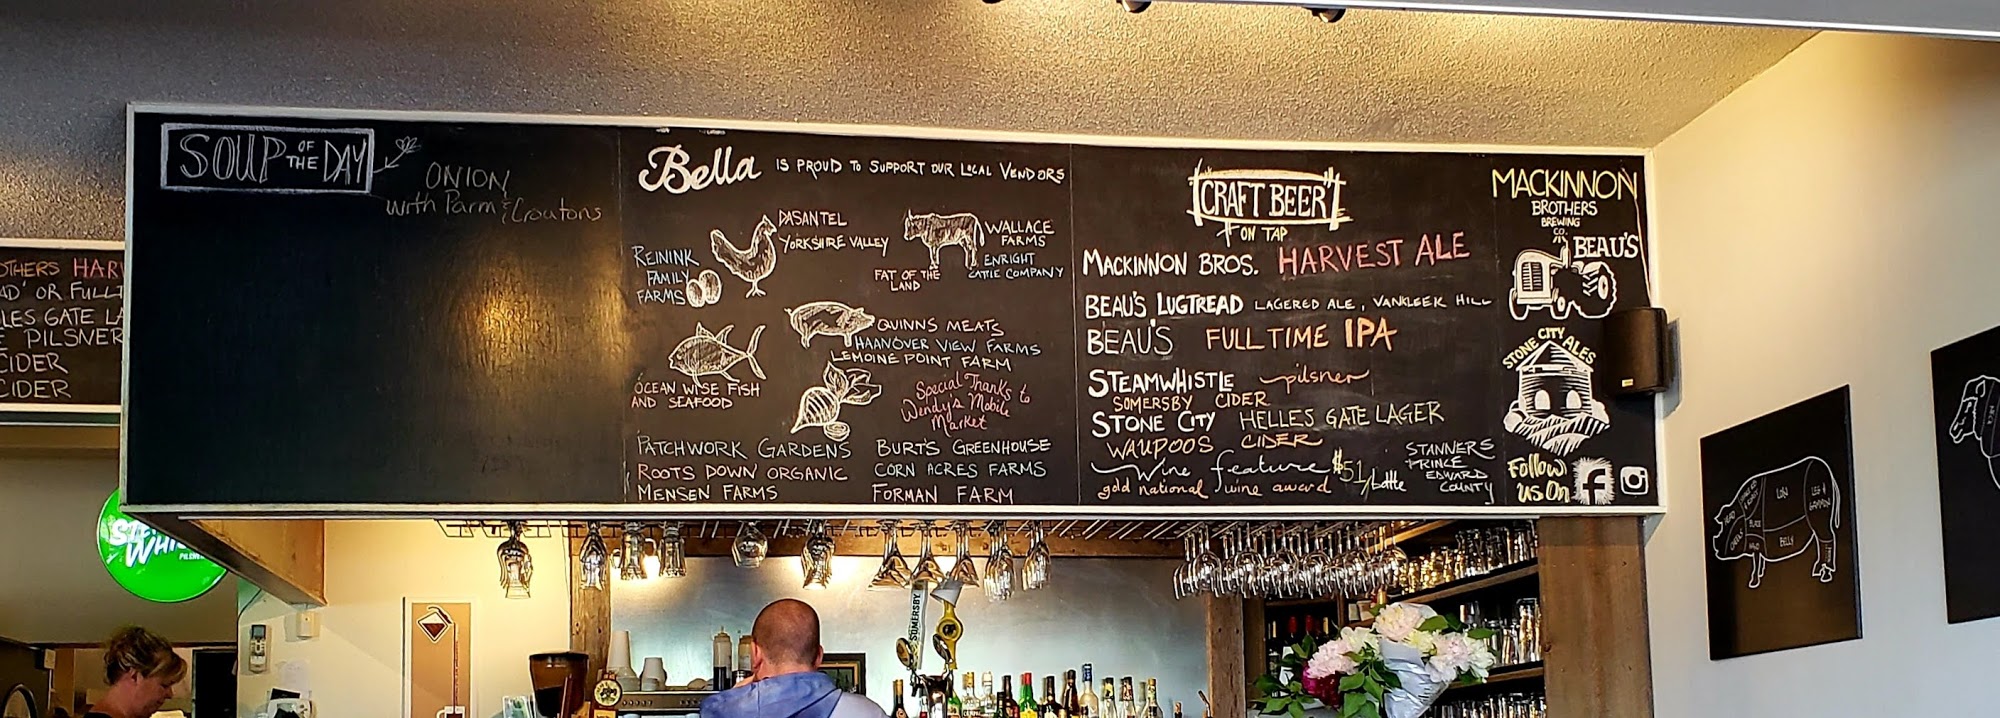 SOUP OF THE DAY
ONION
with Parm & Croutons
OTHERS HAR
AD' OR FULLT
LES GATE LA
E PILSNER
CIDER
CIDER
Bella IS PROUD TO SUPPORT OUR LOCAL VENDORS
REININK
FAMILY
FARMS
DASANTEL
YORKSHIRE VALLEY
WALLACE
FARMS
ENRIGHT
CATTLE COMPANY
FAT OF THE
LAND
QUINNS MEATS
HAANOVER VIEW FARMS
LEMOINE POINT FARM
OCEAN WISE FISH
AND SEAFOOD
Special Thanks to
Wendy's Mobile
Market
PATCHWORK GARDENS
ROOTS DOWN ORGANIC
MENSEN FARMS
BURT'S GREENHOUSE
CORN ACRES FARMS
FORMAN FARM
CRAFT BEER
ON TAP
MACKINNON BROS. HARVEST ALE
BEAU'S LUGTREAD LAGERED ALE, VANKLEEK HILL
BEAU'S FULL TIME IPA
STEAMWHISTLE pilsner
SOMERSBY CIDER
STONE CITY HELLES GATE LAGER
WAUPOOS CIDER
Wine feature $51/bottle
gold national wine award
STANNERS
PRINCE
EDWARD
COUNTY
MACKINNON
BROTHERS
BREWING
CO.
BEAU'S
STONE CITY ALES
Follow
us On
PILSNER
SOMERSBY
HEAD
LOIN
LEG &
GAMMON
BELLY